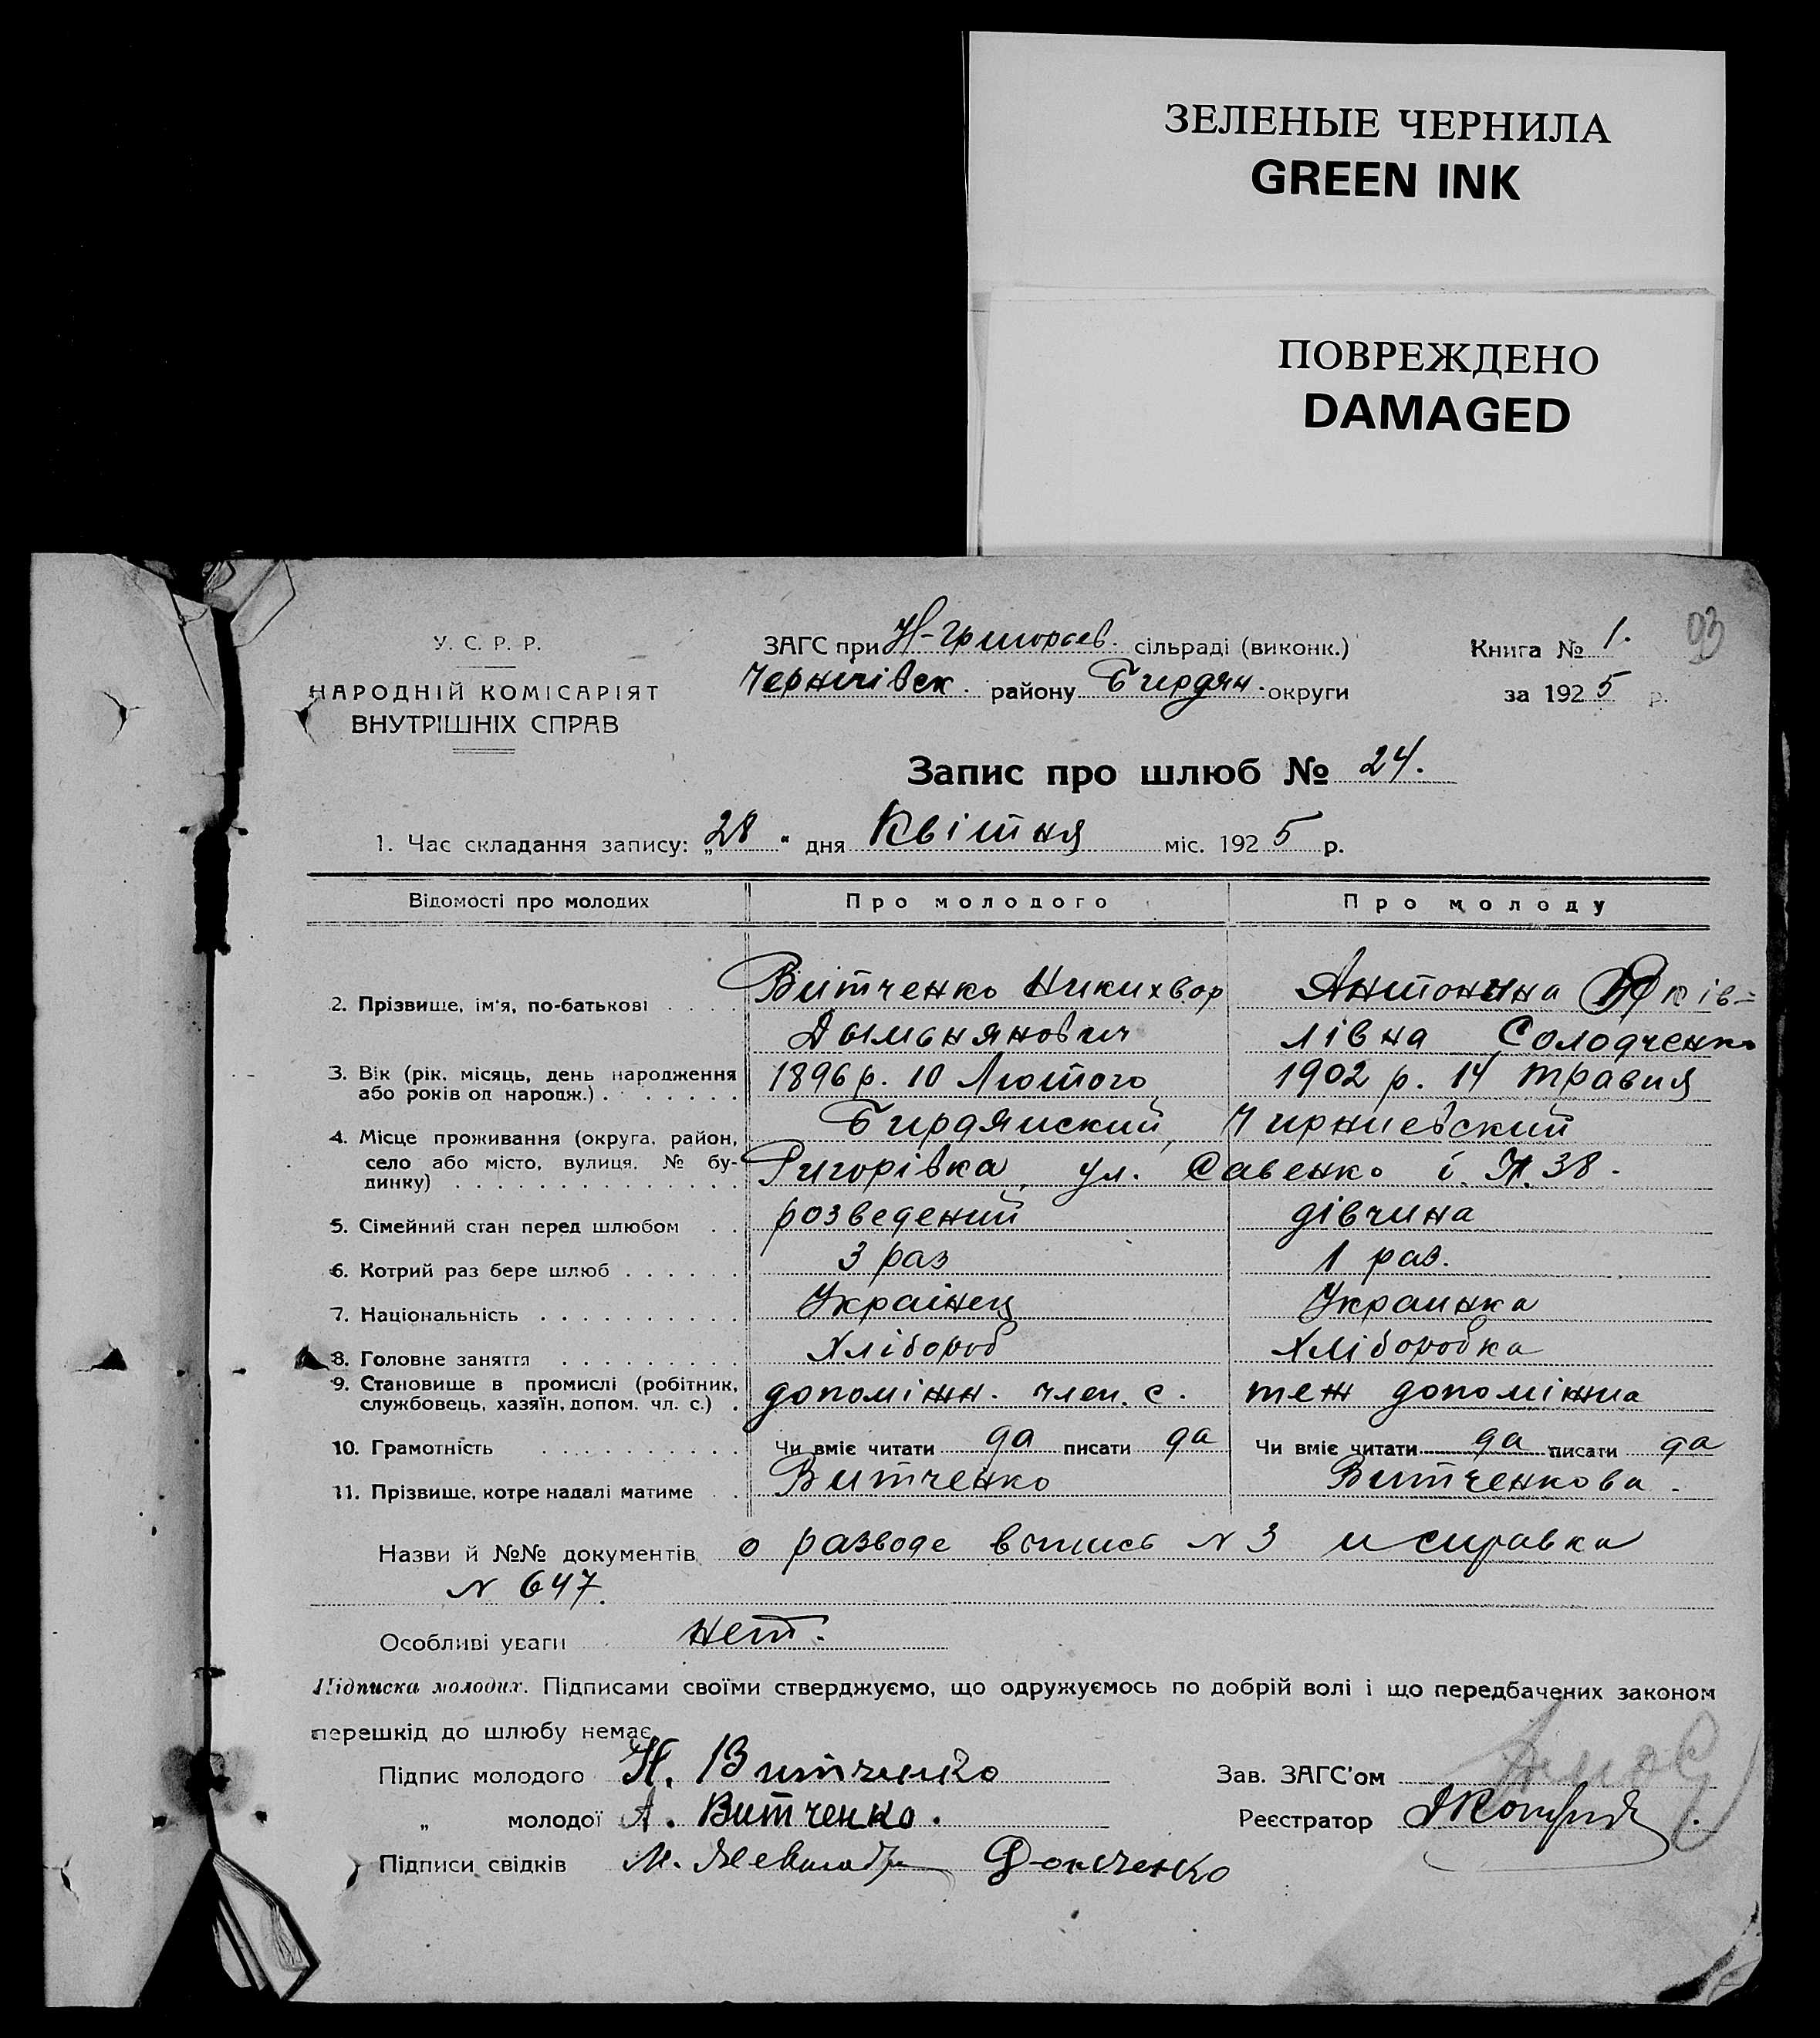 ЗЕЛЕНЫЕ ЧЕРНИЛА
GREEN INK
ПОВРЕЖДЕНО
DAMAGED
У. С. Р. Р.
НАРОДНІЙ КОМІСАРІЯТ
ВНУТРІШНІХ СПРАВ
ЗАГС при Н-Григорьев. сільраді (виконк.)
Чернігівск. району Бирдян. округи
Книга № 1.
за 1925 р.
Запис про шлюб № 24.
1. Час складання запису: „28" дня Квітня міс. 1925 р.
Відомості про молодих Про молодого Про молоду
2. Прізвище, ім'я, по-батькові . . . . Витченко Никихвор Антонина Яків-
Дымьянович лівна Солодченко
3. Вік (рік, місяць, день народження або років од народж.) . . . . . . 1896 р. 10 Лютого 1902 р. 14 травня
4. Місце проживання (округа, район, село або місто, вулиця, № будинку) . . . . Бирдянский, Чирниевский
Григорівка, ул. Савенко і. Н. 38.
5. Сімейний стан перед шлюбом . . розведений дівчина
6. Котрий раз бере шлюб . . . . . . 3 раз 1 раз.
7. Національність . . . . . . . . . . Українец Украинка
8. Головне заняття . . . . . . . . . Хлібороб Хліборобка
9. Становище в промислі (робітник, службовець, хазяїн, допом. чл. с.) . допоміжн. член. с. теж допоміжна
10. Грамотність . . . . . . . . . . Чи вміє читати да писати да Чи вміє читати да писати да
11. Прізвище, котре надалі матиме . . Витченко Витченкова.
Назви й №№ документів о разводе впись N 3 и справка
N 647.
Особливі уваги нет.
Підписка молодих. Підписами своїми стверджуємо, що одружуємось по добрій волі і що передбачених законом
перешкід до шлюбу немає
Підпис молодого Н. Витченко Зав. ЗАГС'ом
„ молодої А. Витченко. Реєстратор
Підписи свідків М.